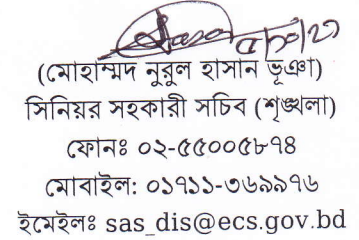 (মোহাম্মদ নুরুল হাসান ভূঞা)
সিনিয়র সহকারী সচিব (শৃঙ্খলা)
ফোনঃ ০২-৫৫০০৫৮৭৪
মোবাইল: ০১৭১১-৩৬৯৯৭৬
ইমেইলঃ sas_dis@ecs.gov.bd